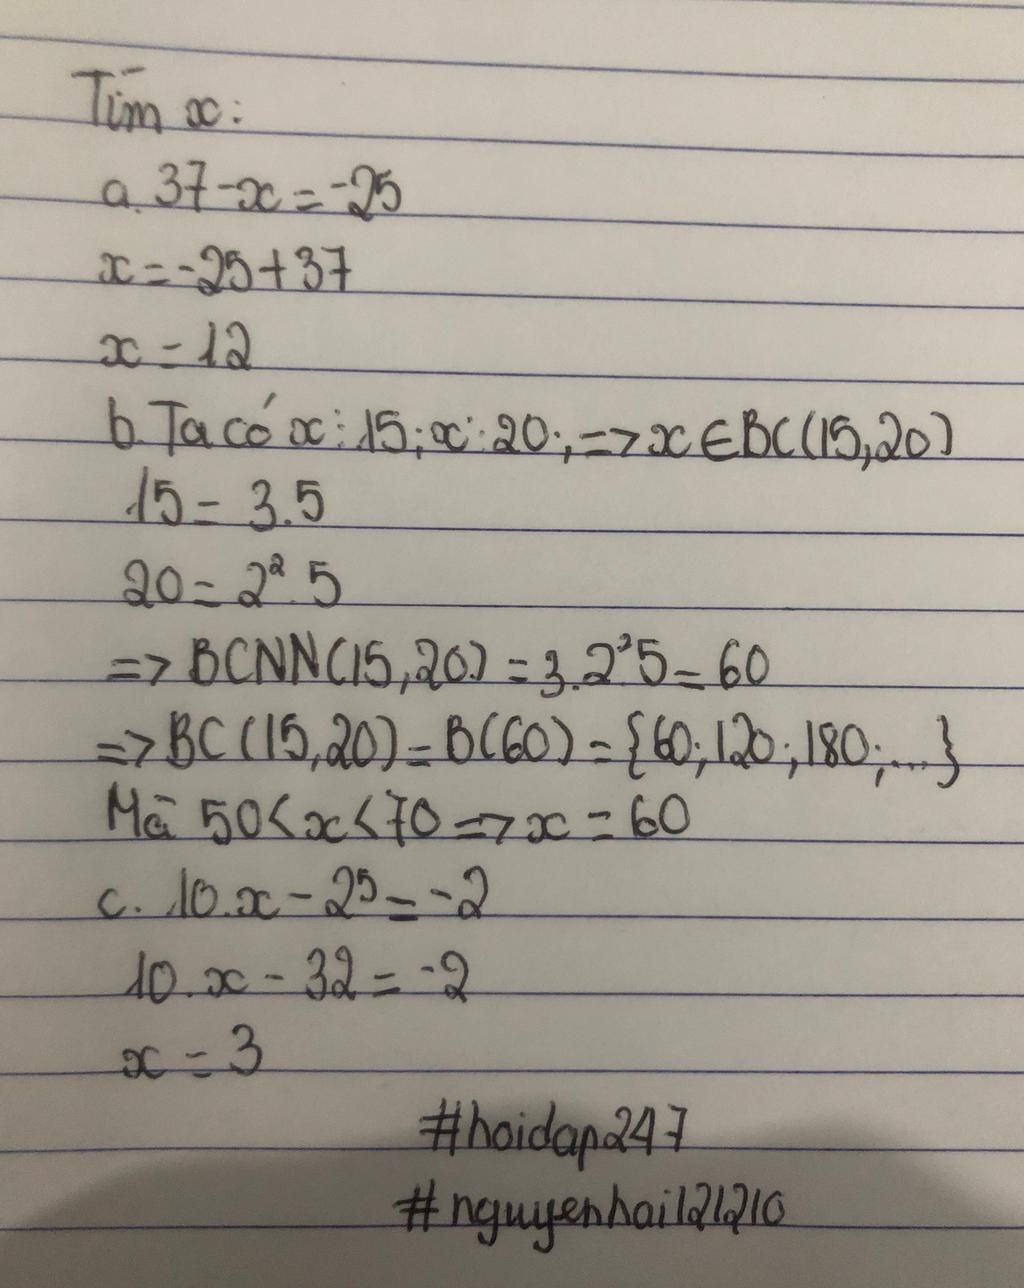 Tìm x:
a. 37-x = -25
x = -25+37
x = 12
b. Ta có x⋮15; x⋮20; => x ∈ BC(15,20)
15 = 3.5
20 = 2².5
=> BCNN(15,20) = 3.2²5 = 60
=> BC(15,20) = B(60) = {60;120;180;...}
Mà 50<x<70 => x = 60
c. 10.x - 2⁵ = -2
10.x - 32 = -2
x = 3
#hoidap247
#nguyenhai121210